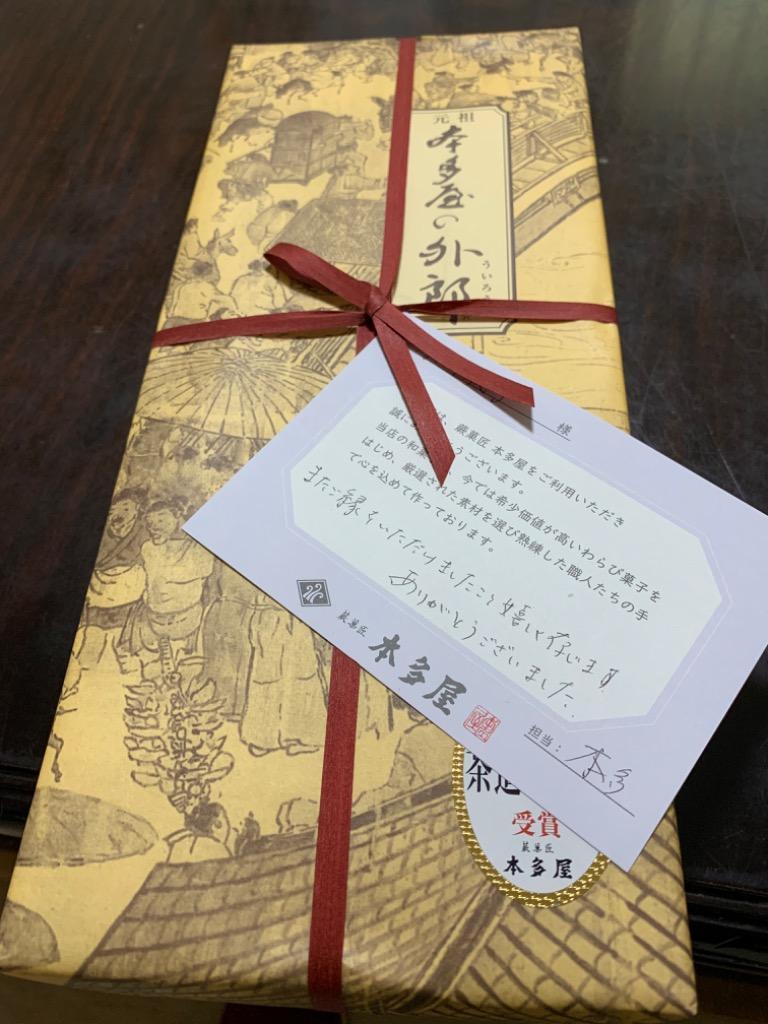 元祖
本多屋の外郎
ういろ
様
誠に は、蕨菓匠 本多屋をご利用いただき
うございます。
当店の和菓 今では希少価値が高いわらび菓子を
はじめ、厳選された素材を選び熟練した職人たちの手
で心を込めて作っております。
またご縁をいただけましたこと嬉しく存じます
ありがとうございました。
蕨菓匠 本多屋
担当：本多
茶道
受賞
蕨菓匠
本多屋